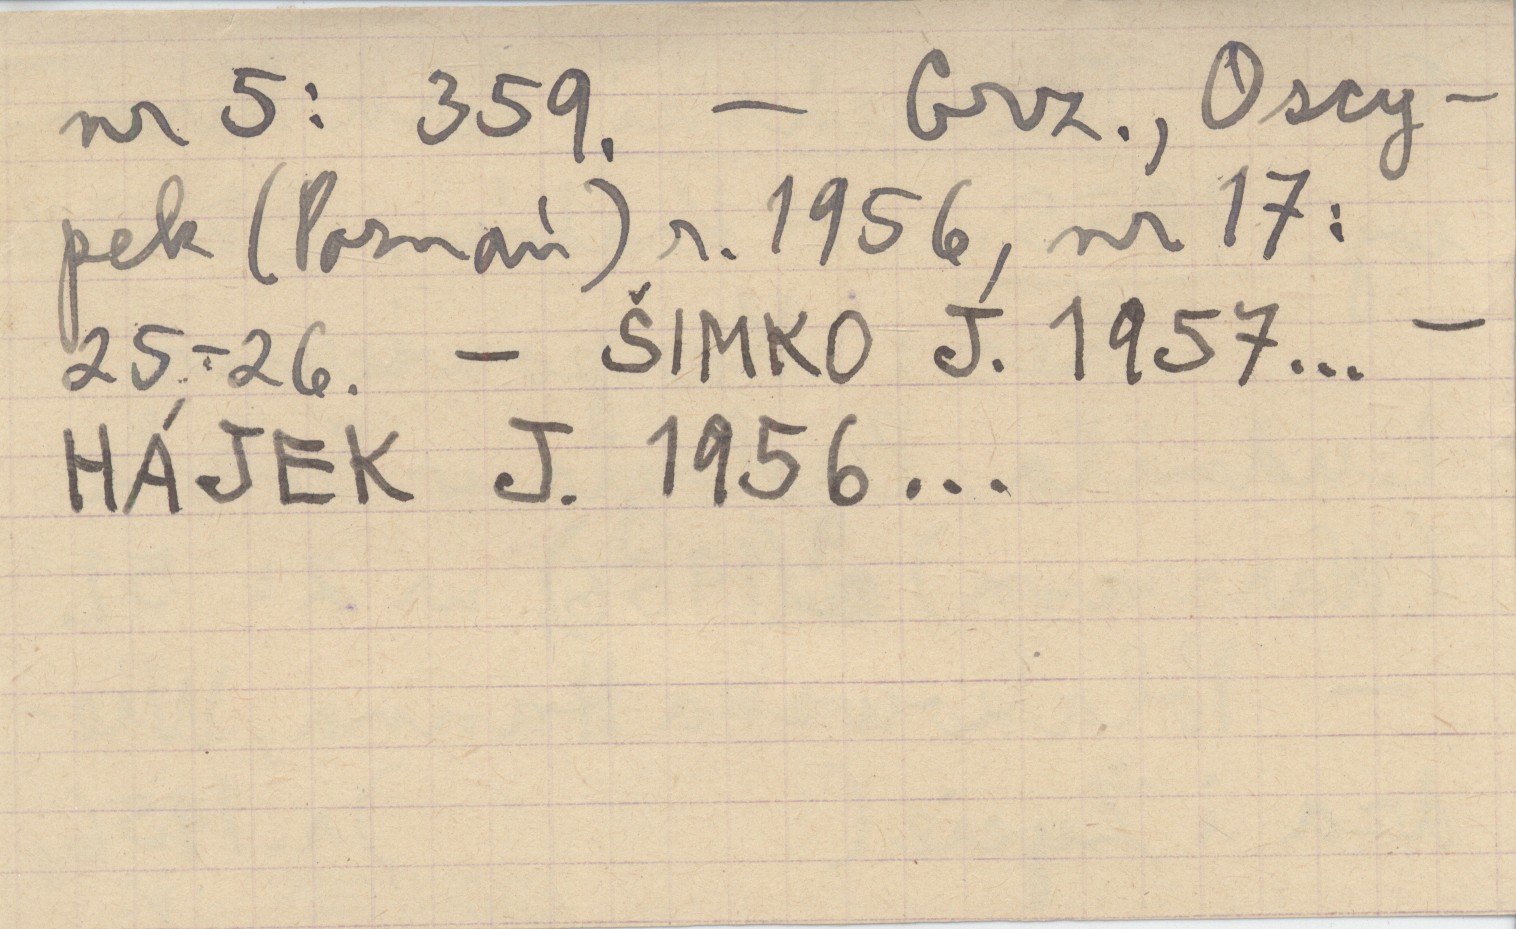 nr 5: 359. — Grz., Oscy-
pek (Poznań) r. 1956, nr 17:
25-26. — ŠIMKO J. 1957... —
HÁJEK J. 1956...